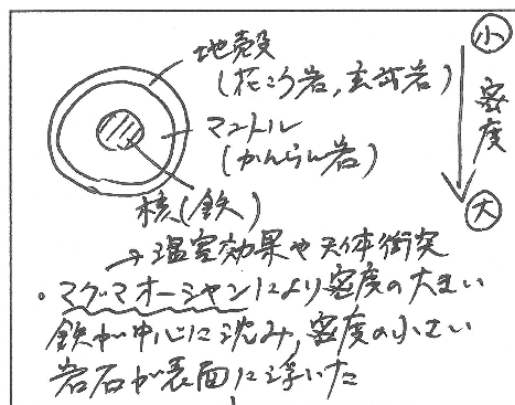 地殻
(花こう岩,玄武岩)
マントル
(かんらん岩)
核(鉄)
小
密度
大
→温室効果や天体衝突
・マグマオーシャンにより密度の大きい
鉄が中心に沈み,密度の小さい
岩石が表面に浮いた